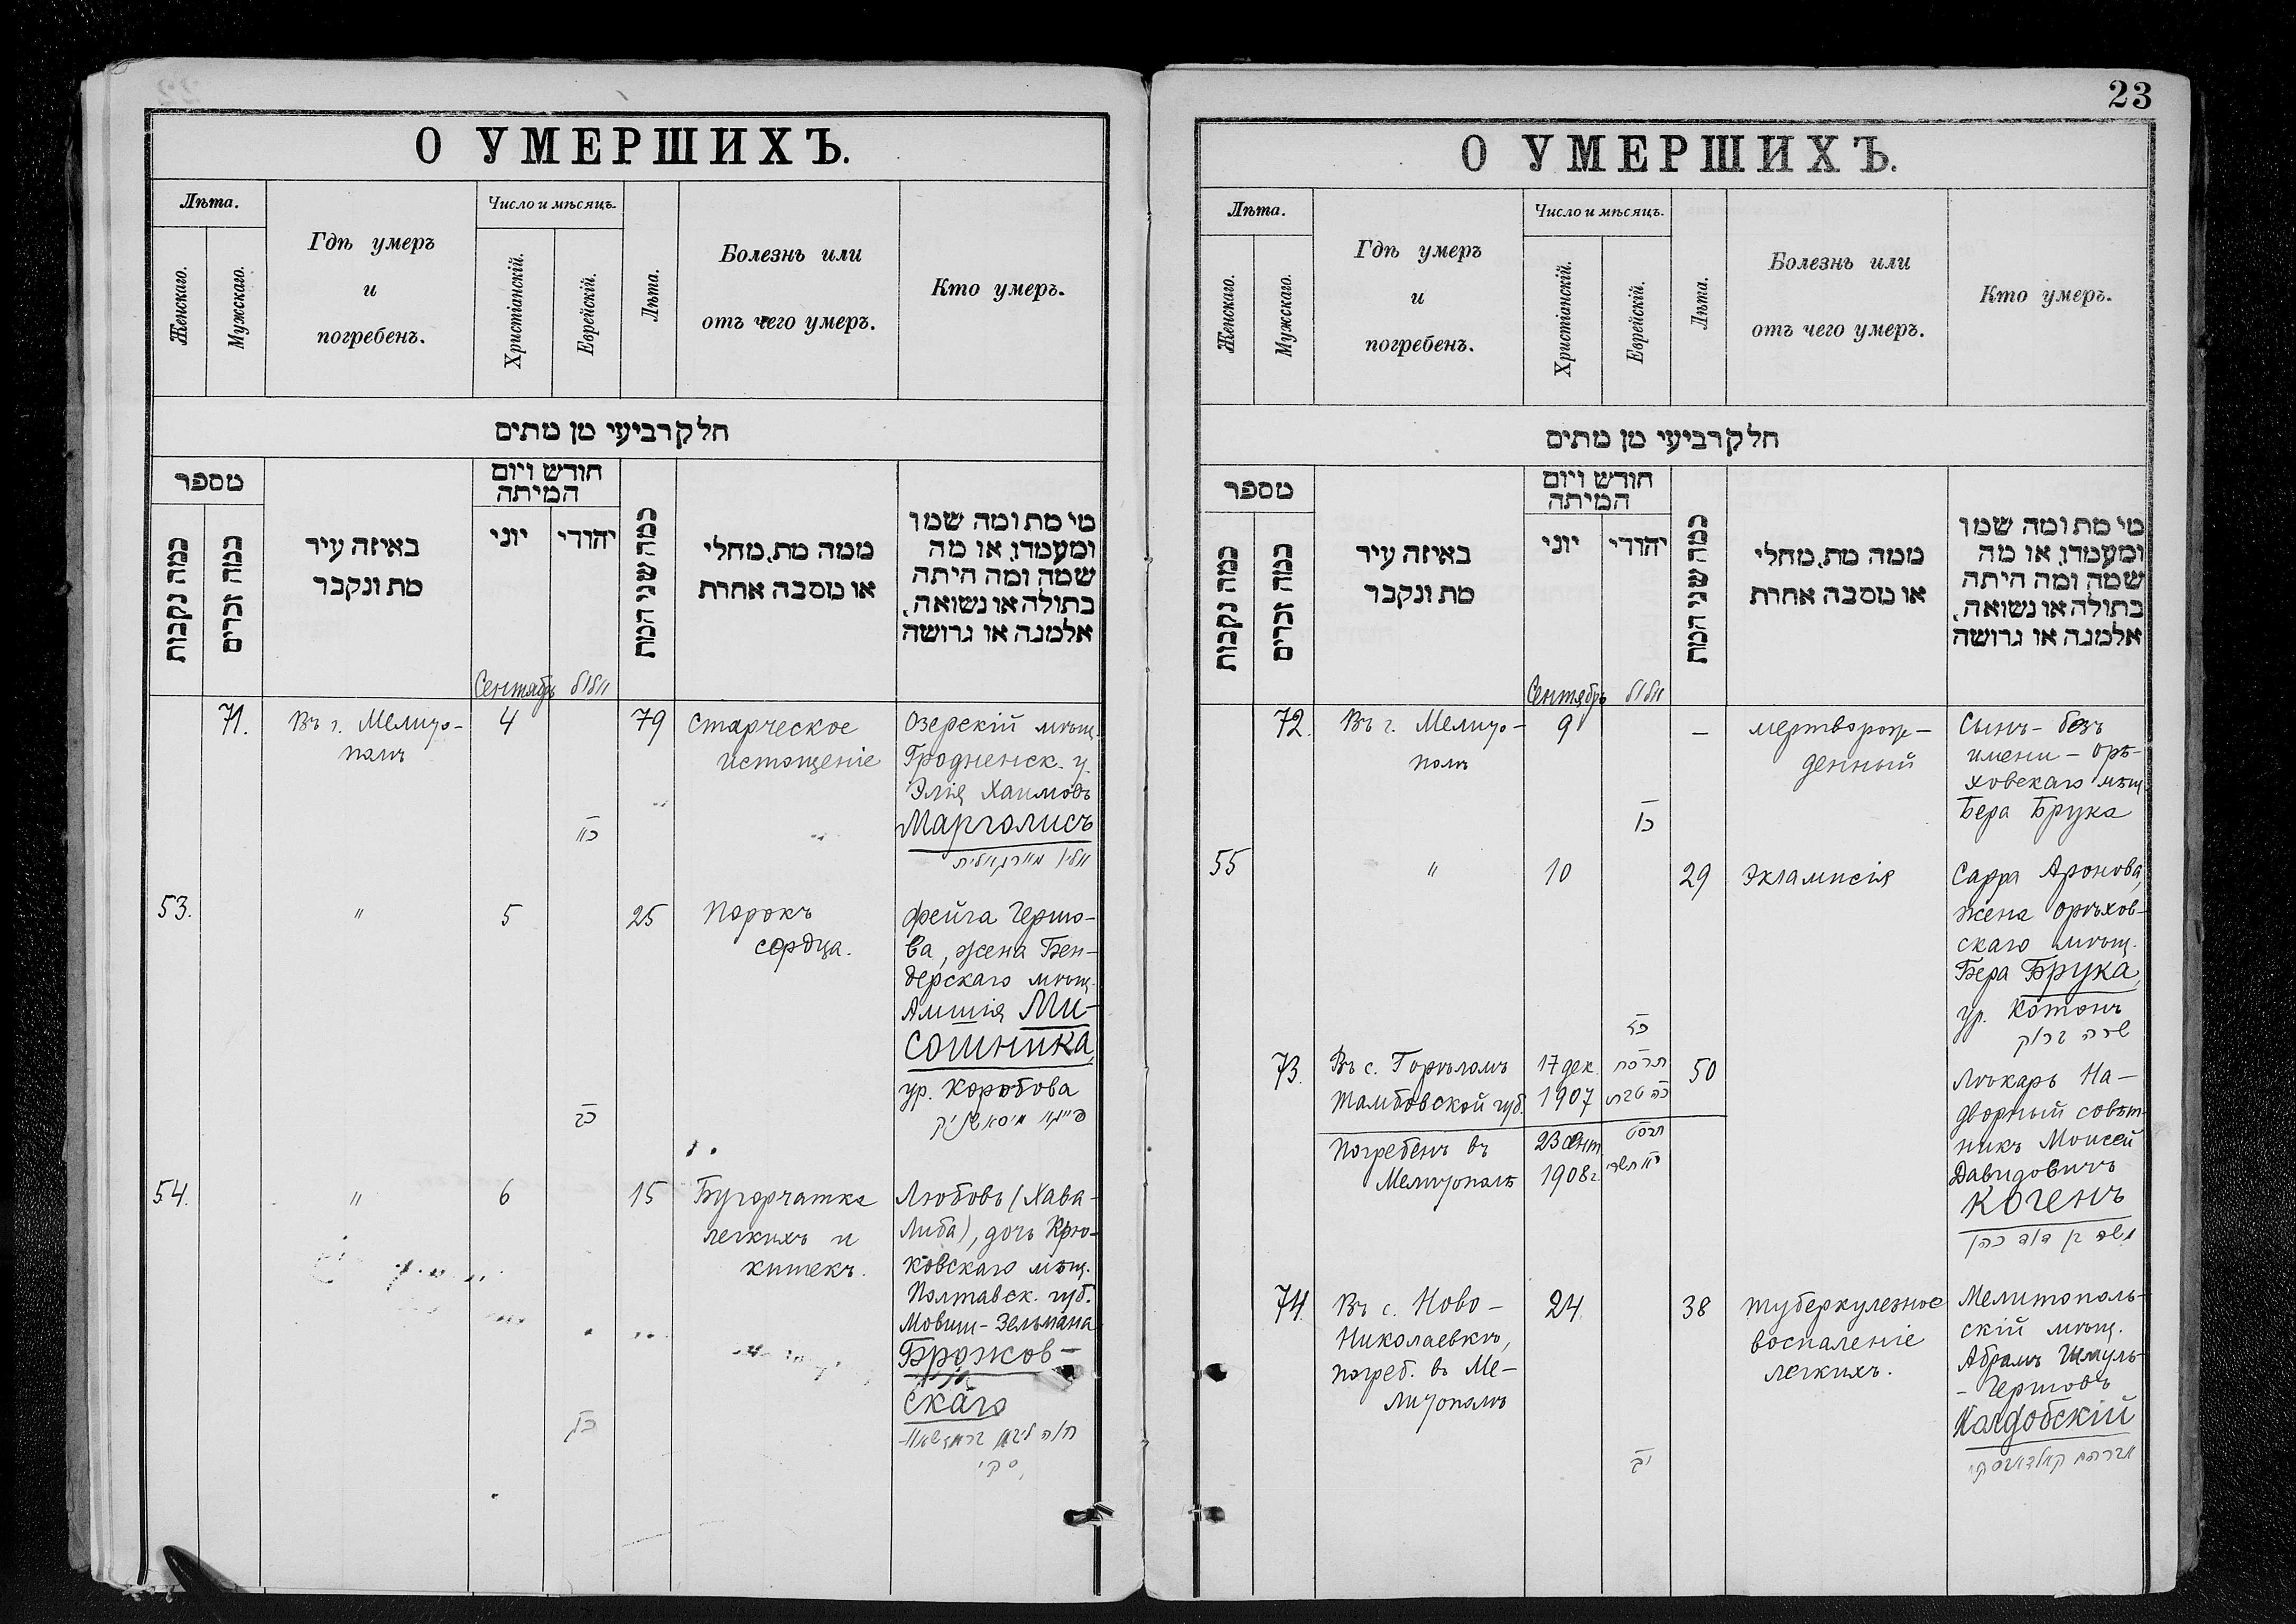 О УМЕРШИХЪ.
Лѣта.
Женскаго.
Мужскаго.
Гдѣ умеръ
и
погребенъ.
Число и мѣсяцъ.
Христіанскій.
Еврейскій.
Лѣта.
Болезнь или
отъ чего умеръ.
Кто умеръ.
חלק רביעי מן מתים
מספר
כמה נקבות
כמה זכרים
באיזה עיר
מת ונקבר
חודש ויום
המיתה
יוני
יהודי
כמה שני המת
ממה מת, מחלי
או מסבה אחרת
מי מת ומה שמו
ומעמדו, או מה
שמה ומה היתה
בתולה או נשואה,
אלמנה או גרושה
Сентябрь אלול
71.
Въ г. Мелито-
полѣ
4
79
Старческое
истощеніе
Озерскій мѣщ.
Гродненск. у.
Элія Хаимовъ
Марголисъ
53.
"
5
כב
25
Порокъ
сердца.
Фейга Гершо-
ва, жена Бен-
дерскаго мѣщ.
Амшія Ми-
сошника,
ур. Коробова
54.
"
6
15
Бугорчатка
легкихъ и
кишекъ.
Любовь (Хава-
Либа), дочь Крю-
ковскаго мѣщ.
Полтавск. губ.
Мовши-Зельмана
Бражов-
скаго
סקי
23
О УМЕРШИХЪ.
Лѣта.
Женскаго.
Мужскаго.
Гдѣ умеръ
и
погребенъ.
Число и мѣсяцъ.
Христіанскій.
Еврейскій.
Лѣта.
Болезнь или
отъ чего умеръ.
Кто умеръ.
חלק רביעי מן מתים
מספר
כמה נקבות
כמה זכרים
באיזה עיר
מת ונקבר
חודש ויום
המיתה
יוני
יהודי
כמה שני המת
ממה מת, מחלי
או מסבה אחרת
מי מת ומה שמו
ומעמדו, או מה
שמה ומה היתה
בתולה או נשואה,
אלמנה או גרושה
Сентябрь אלול
72.
Въ г. Мелито-
полѣ
9
כו
—
мертворож-
денный
Сынъ - безъ
имени - Орѣ-
ховскаго мѣщ.
Бера Брука
55
"
10
כז
29
Эклампсія
Сарра Аронова,
жена Орѣхов-
скаго мѣщ.
Бера Брука,
ур. Котонъ
שרה ברוק
73.
Въ с. Горѣломъ
Тамбовской губ.
17 дек.
1907
תרסח
כה טבת
50
Погребенъ въ
Мелитополѣ
23 сент.
1908 г.
תרסט
תשרי
Лѣкарь На-
дворный совѣт-
никъ Моисей
Давидовичъ
Когенъ
משה בן דוד כהן
74.
Въ с. Ново-
Николаевкѣ,
погреб. въ Ме-
литополѣ
24
38
Туберкулезное
воспаленіе
легкихъ.
Мелитополь-
скій мѣщ.
Абрамъ Шмуль-
- Гершовъ
Колдобскій